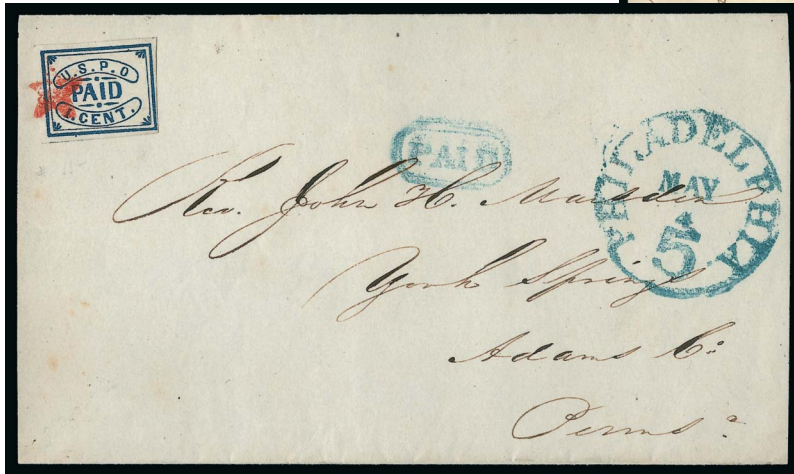 U.S.P.O
PAID
1 CENT.
PAID
PHILADELPHIA
MAY
4
5
Rev. John H. Marsden
York Springs
Adams Co:
Penns.a